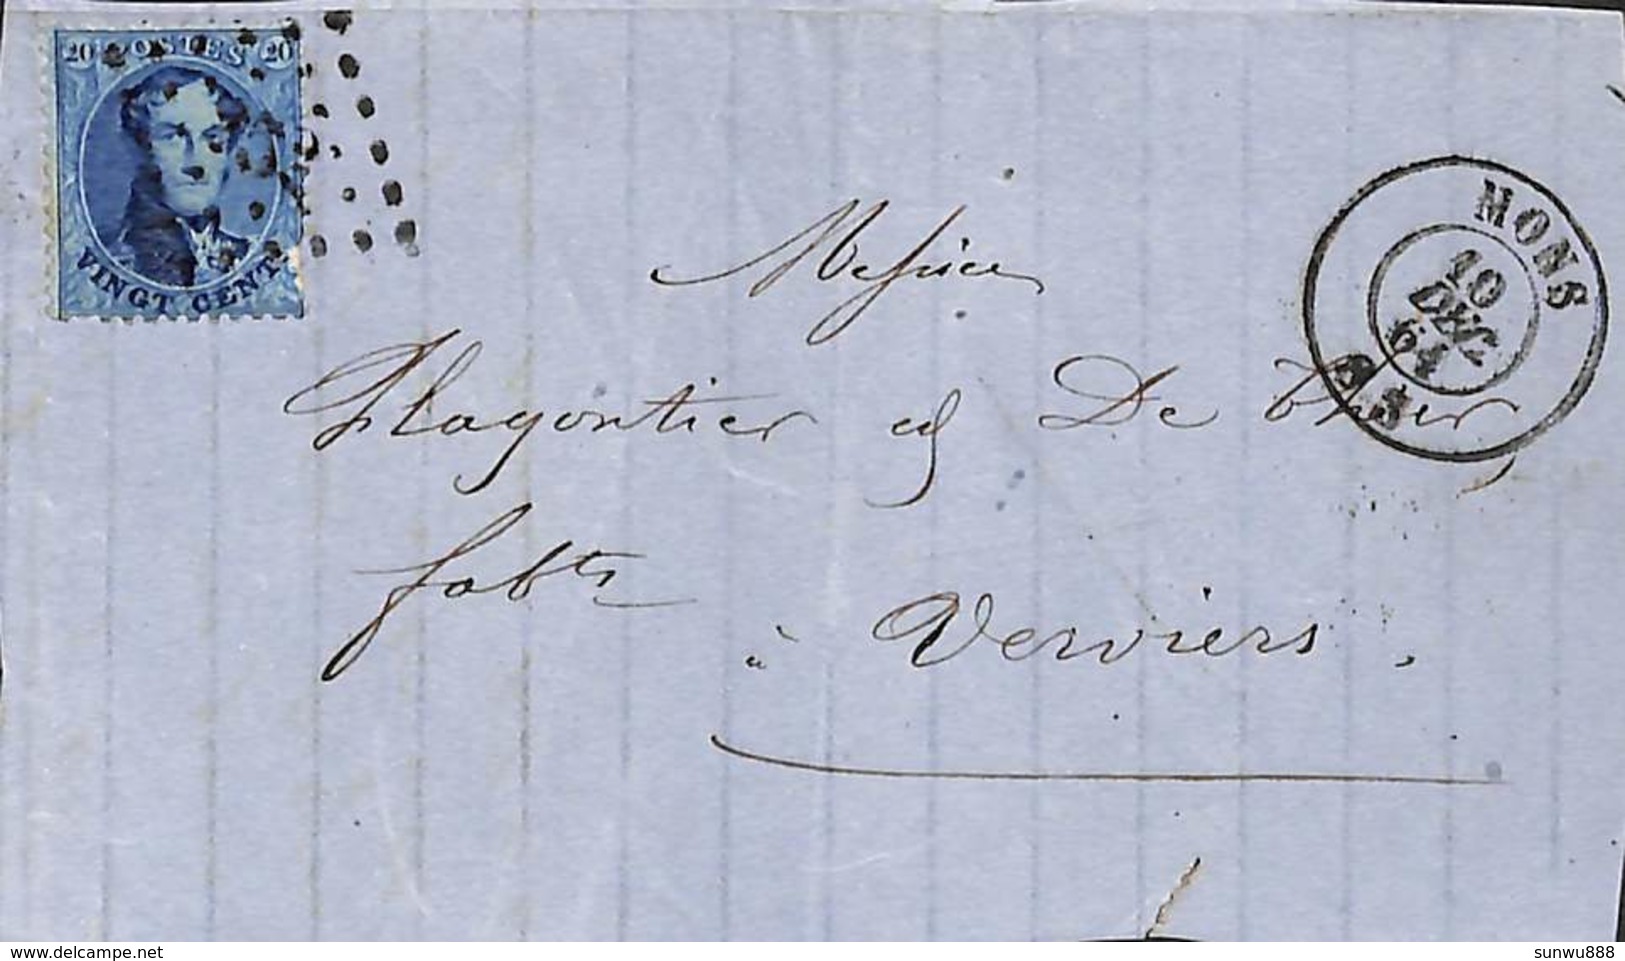 20 POSTES 20
VINGT CENT
MONS
10
DEC
64
Messieurs
Plagontier & De Thier
fabts
à Verviers.
www.delcampe.net
sunwu888